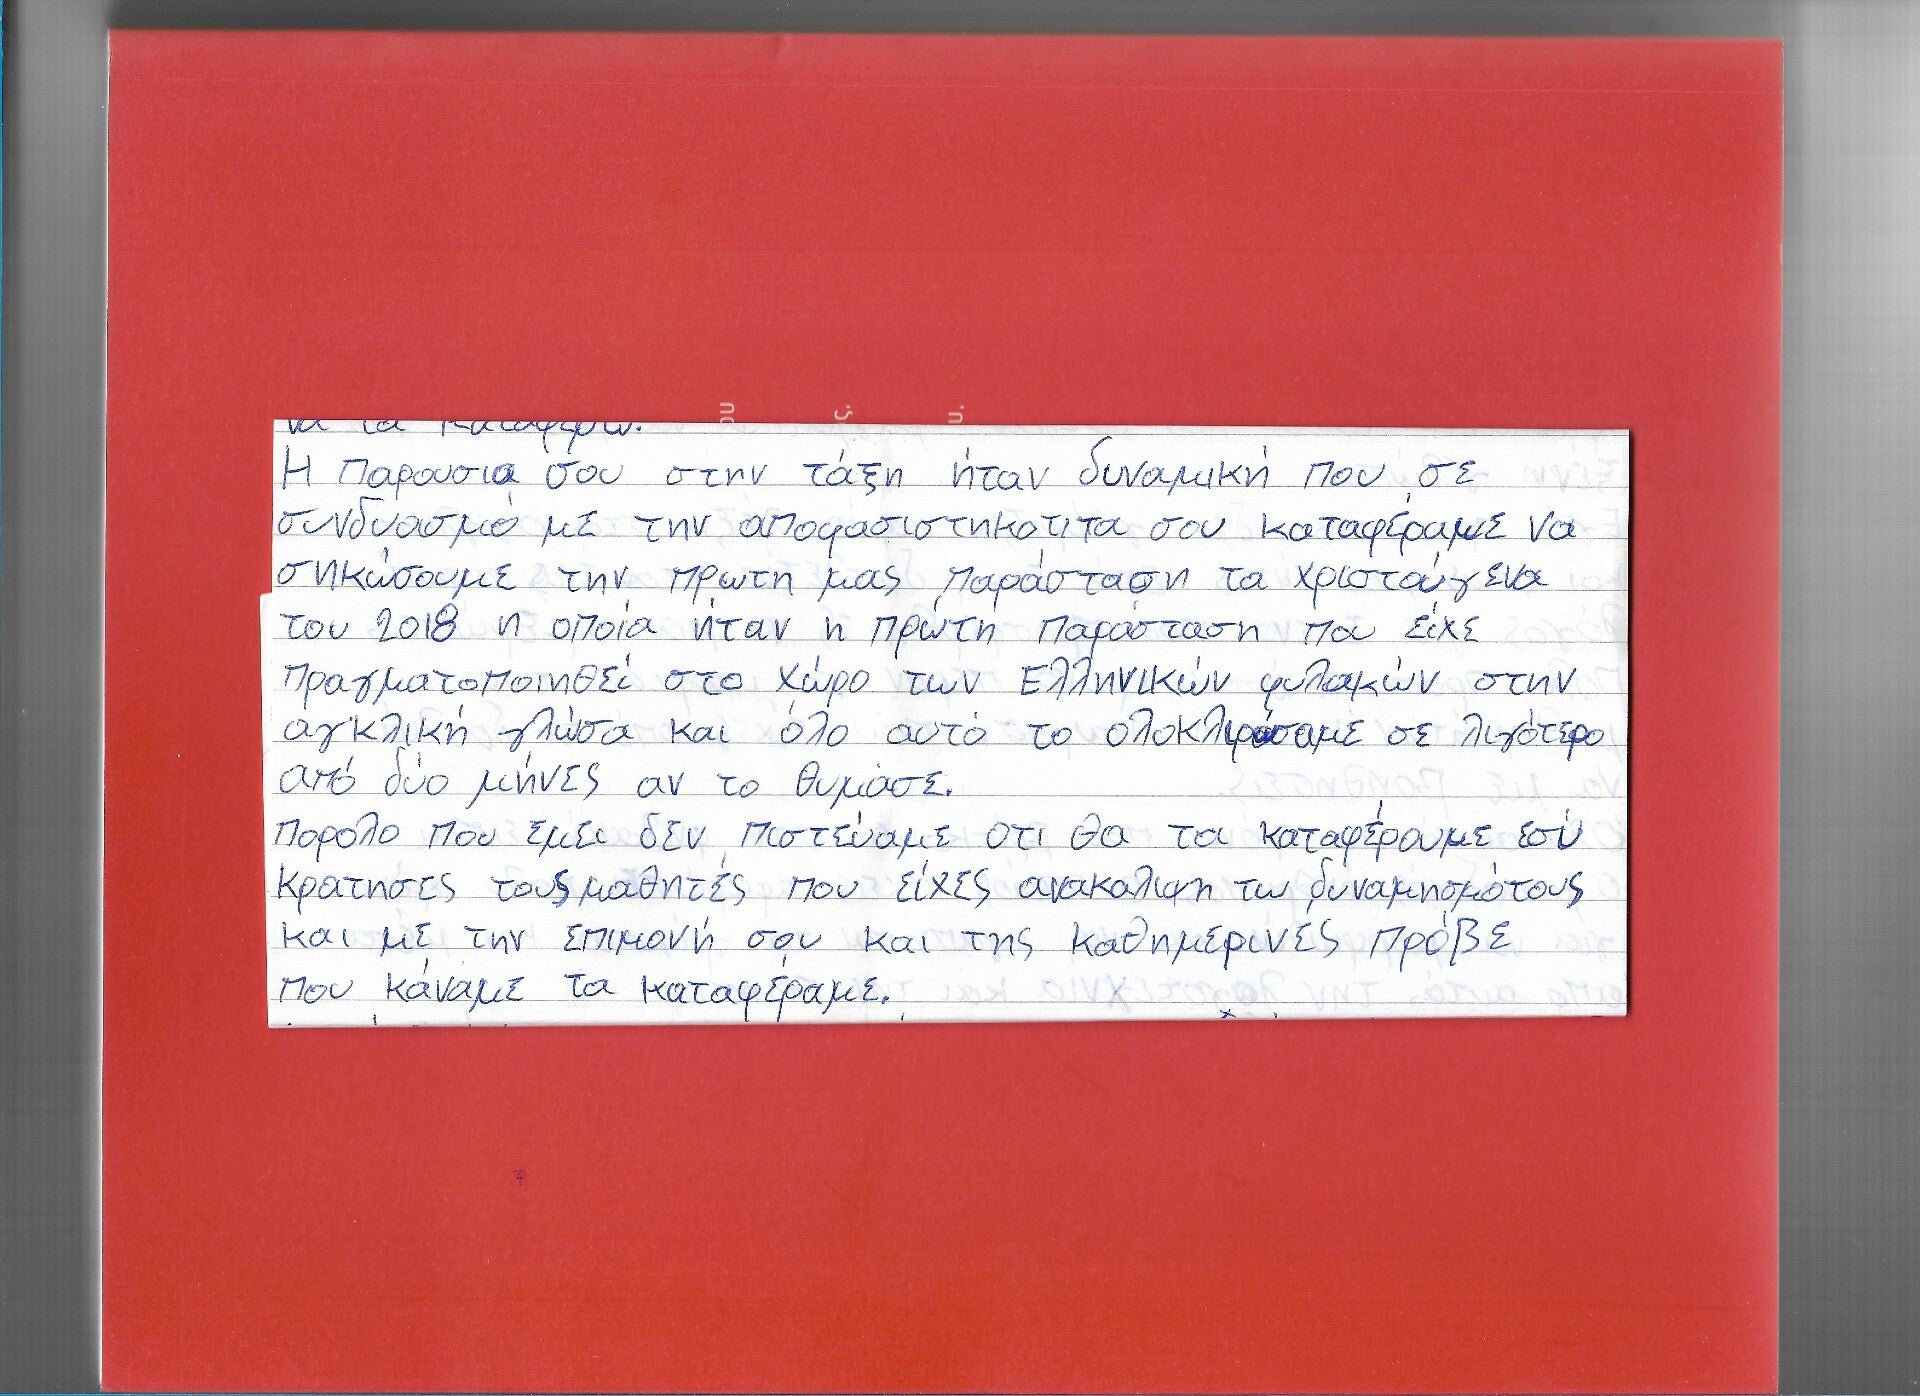 να τα καταφέρω.
Η παρουσια σου στην τάξη ήταν δυναμική που σε
συνδυασμό με την αποφασιστηκοτιτα σου καταφέραμε να
σηκώσουμε την πρωτη μας παράσταση τα χριστούγενα
του 2018 η οποία ήταν η πρώτη παράσταση που είχε
πραγματοποιηθεί στο χώρο των Ελληνικών φυλακών στην
αγκλική γλώσα και όλο αυτό το ολοκλιρώσαμε σε λιγότερο
από δύο μήνες αν το θυμάσε.
Πορολο που εμεις δεν πιστεύαμε οτι θα τα καταφέρουμε εσύ
κρατησες τους μαθητές που είχες ανακαλιψη τω δυναμησμότους
και με την επιμονή σου και της καθημερινές πρόβε
που κάναμε τα καταφέραμε.